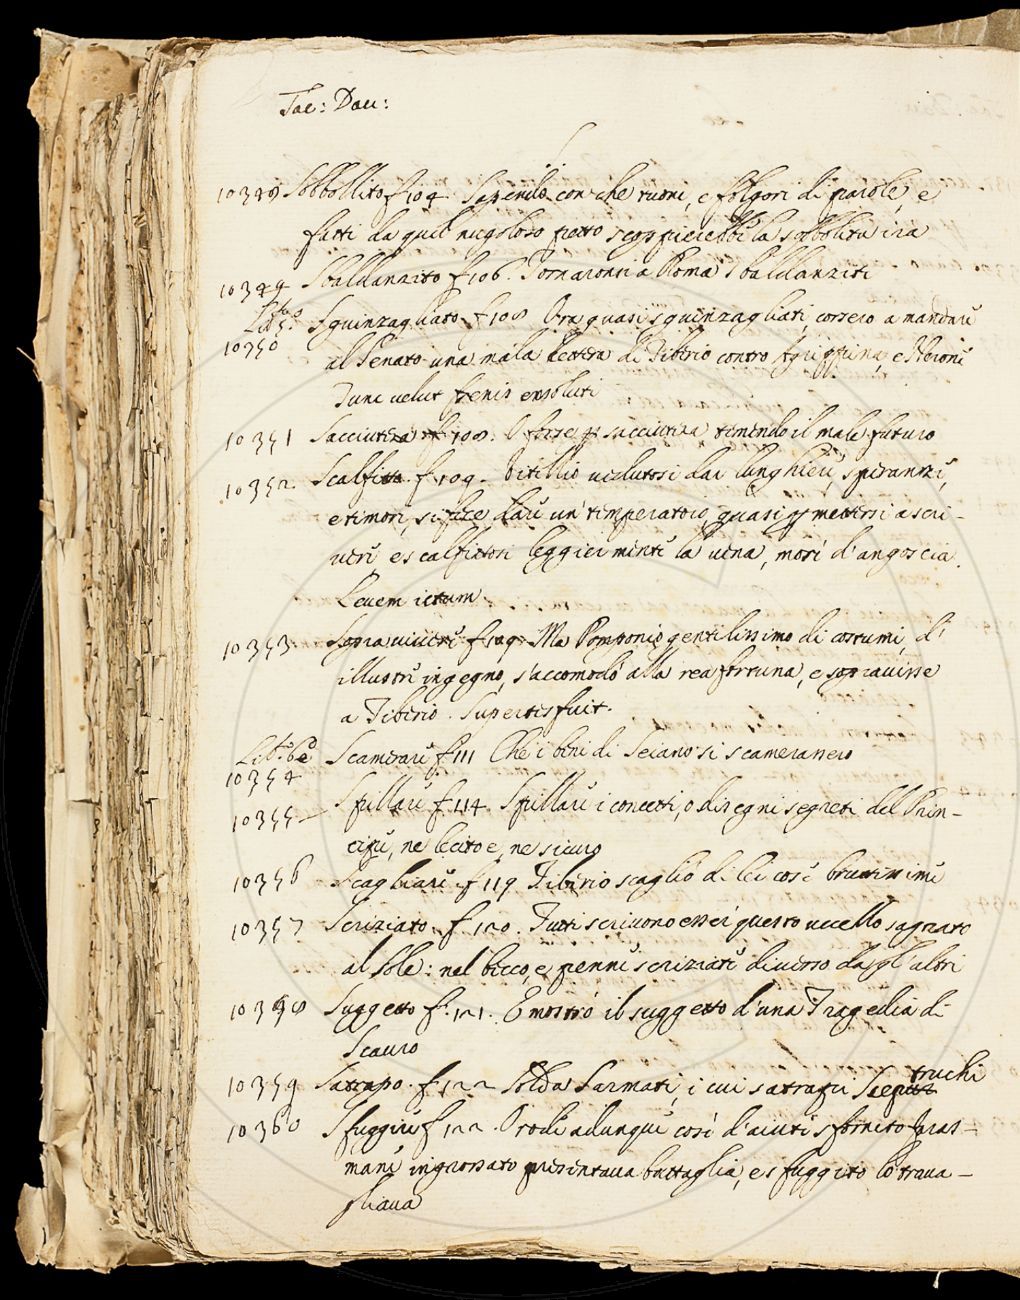 Tac: Dau:
S
10348 Sobbollito f 104. Sapendo con che tuoni, e folgori di parole, e
fatti da quel nugoloso petto scoppierebbe la sobbollita ira
10349 Sbaldanzito f 106. Tornaronsi a Roma sbaldanziti
Lib.º 5.º
10350 Sguinzagliato f 108 Ora quasi sguinzagliati, corsero a mandare
al Senato una mala lettera di Tiberio contro Agrippina, e Nerone
Tunc velut frenis exsoluti
10351 Saccenteria f 108. O forse p saccenteria temendo il male futuro
10352 Scalfitto. f 109. Vitellio vedutosi dar lunghiere, speranze,
e timori, si fece dare un temperatoio, quasi p mettersi a scri-
vere, e scalfittosi leggiermente la vena, morì d'angoscia.
Levem ictum
10353 Sopravvivere f 109 Ma Pomponio gentilissimo di costumi, d'
illustre ingegno, s'accomodò alla rea fortuna, e sopravisse
a Tiberio. Superstes fuit.
Lib.º 6.º
10354 Scamerare f 111 Che i beni di Seiano si scamerassero
10355 Spillare f 114. Spillare i concetti, o disegni segreti del Prin-
cipe, ne lecito e, ne sicuro
10356 Scagliare f 119 Tiberio scagliò di lei cose bruttissime
10357 Screziato. f. 120. Tutti scrivono esser questo uccello sagrato
al Sole: nel becco, e penne screziate diverso dagl'altri
10358 Suggetto f. 121. E mostrò il suggetto d'una Tragedia di
Scauro
10359 Satrapo. f 122 Solda Sarmati, i cui satrapi Sceptruchi
10360 Sfuggire f 122. Orode adunque così d'aiuti sfornito Faras-
mane ingrossato presentava battaglia, e sfuggito lo trava-
gliava